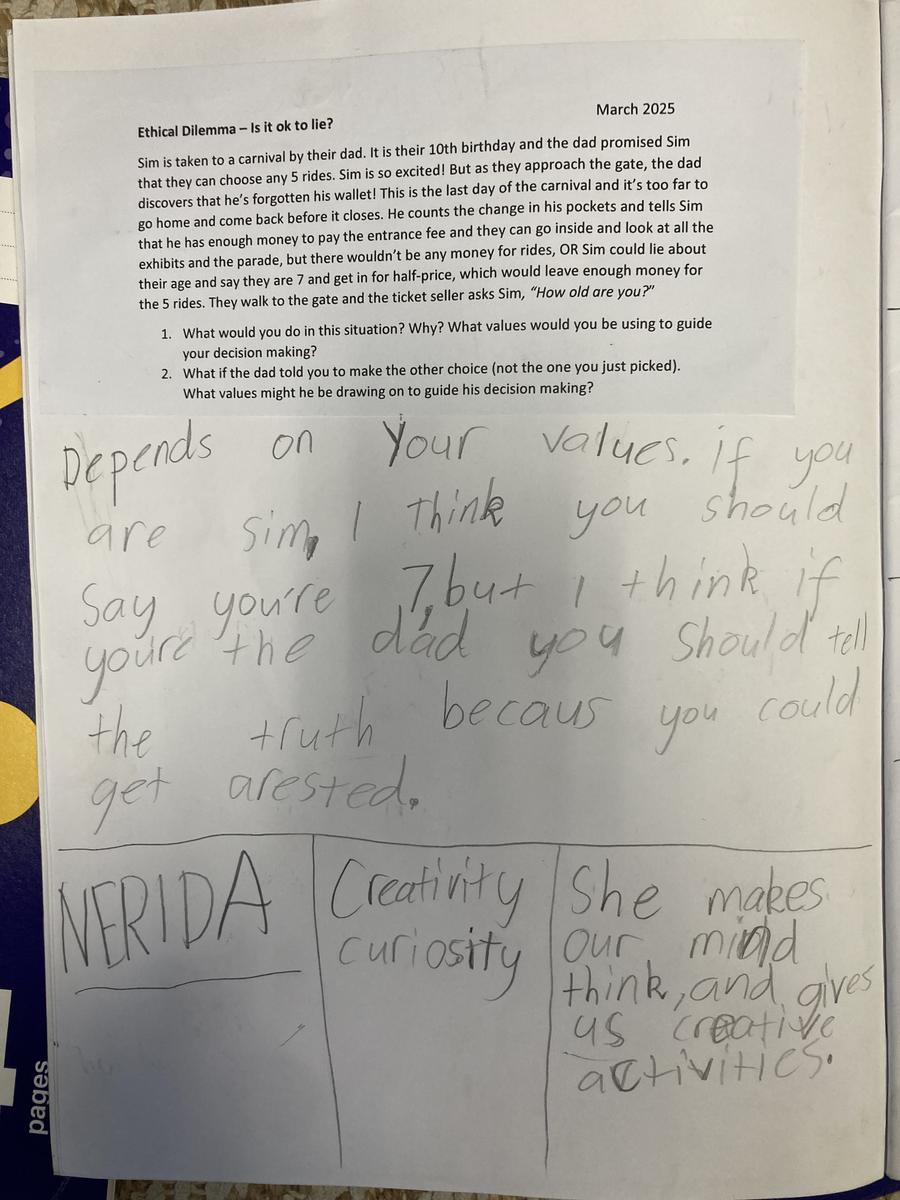 March 2025
Ethical Dilemma – Is it ok to lie?
Sim is taken to a carnival by their dad. It is their 10th birthday and the dad promised Sim
that they can choose any 5 rides. Sim is so excited! But as they approach the gate, the dad
discovers that he's forgotten his wallet! This is the last day of the carnival and it's too far to
go home and come back before it closes. He counts the change in his pockets and tells Sim
that he has enough money to pay the entrance fee and they can go inside and look at all the
exhibits and the parade, but there wouldn't be any money for rides, OR Sim could lie about
their age and say they are 7 and get in for half-price, which would leave enough money for
the 5 rides. They walk to the gate and the ticket seller asks Sim, "How old are you?"
1. What would you do in this situation? Why? What values would you be using to guide
your decision making?
2. What if the dad told you to make the other choice (not the one you just picked).
What values might he be drawing on to guide his decision making?
Depends on Your values. if you
are sim, I think you should
Say you're 7, but I think if
you're the dad you Should tell
the truth becaus you could
get arested.
NERIDA
Creativity
curiosity
She makes
our mind
think, and gives
us creative
activities.
pages